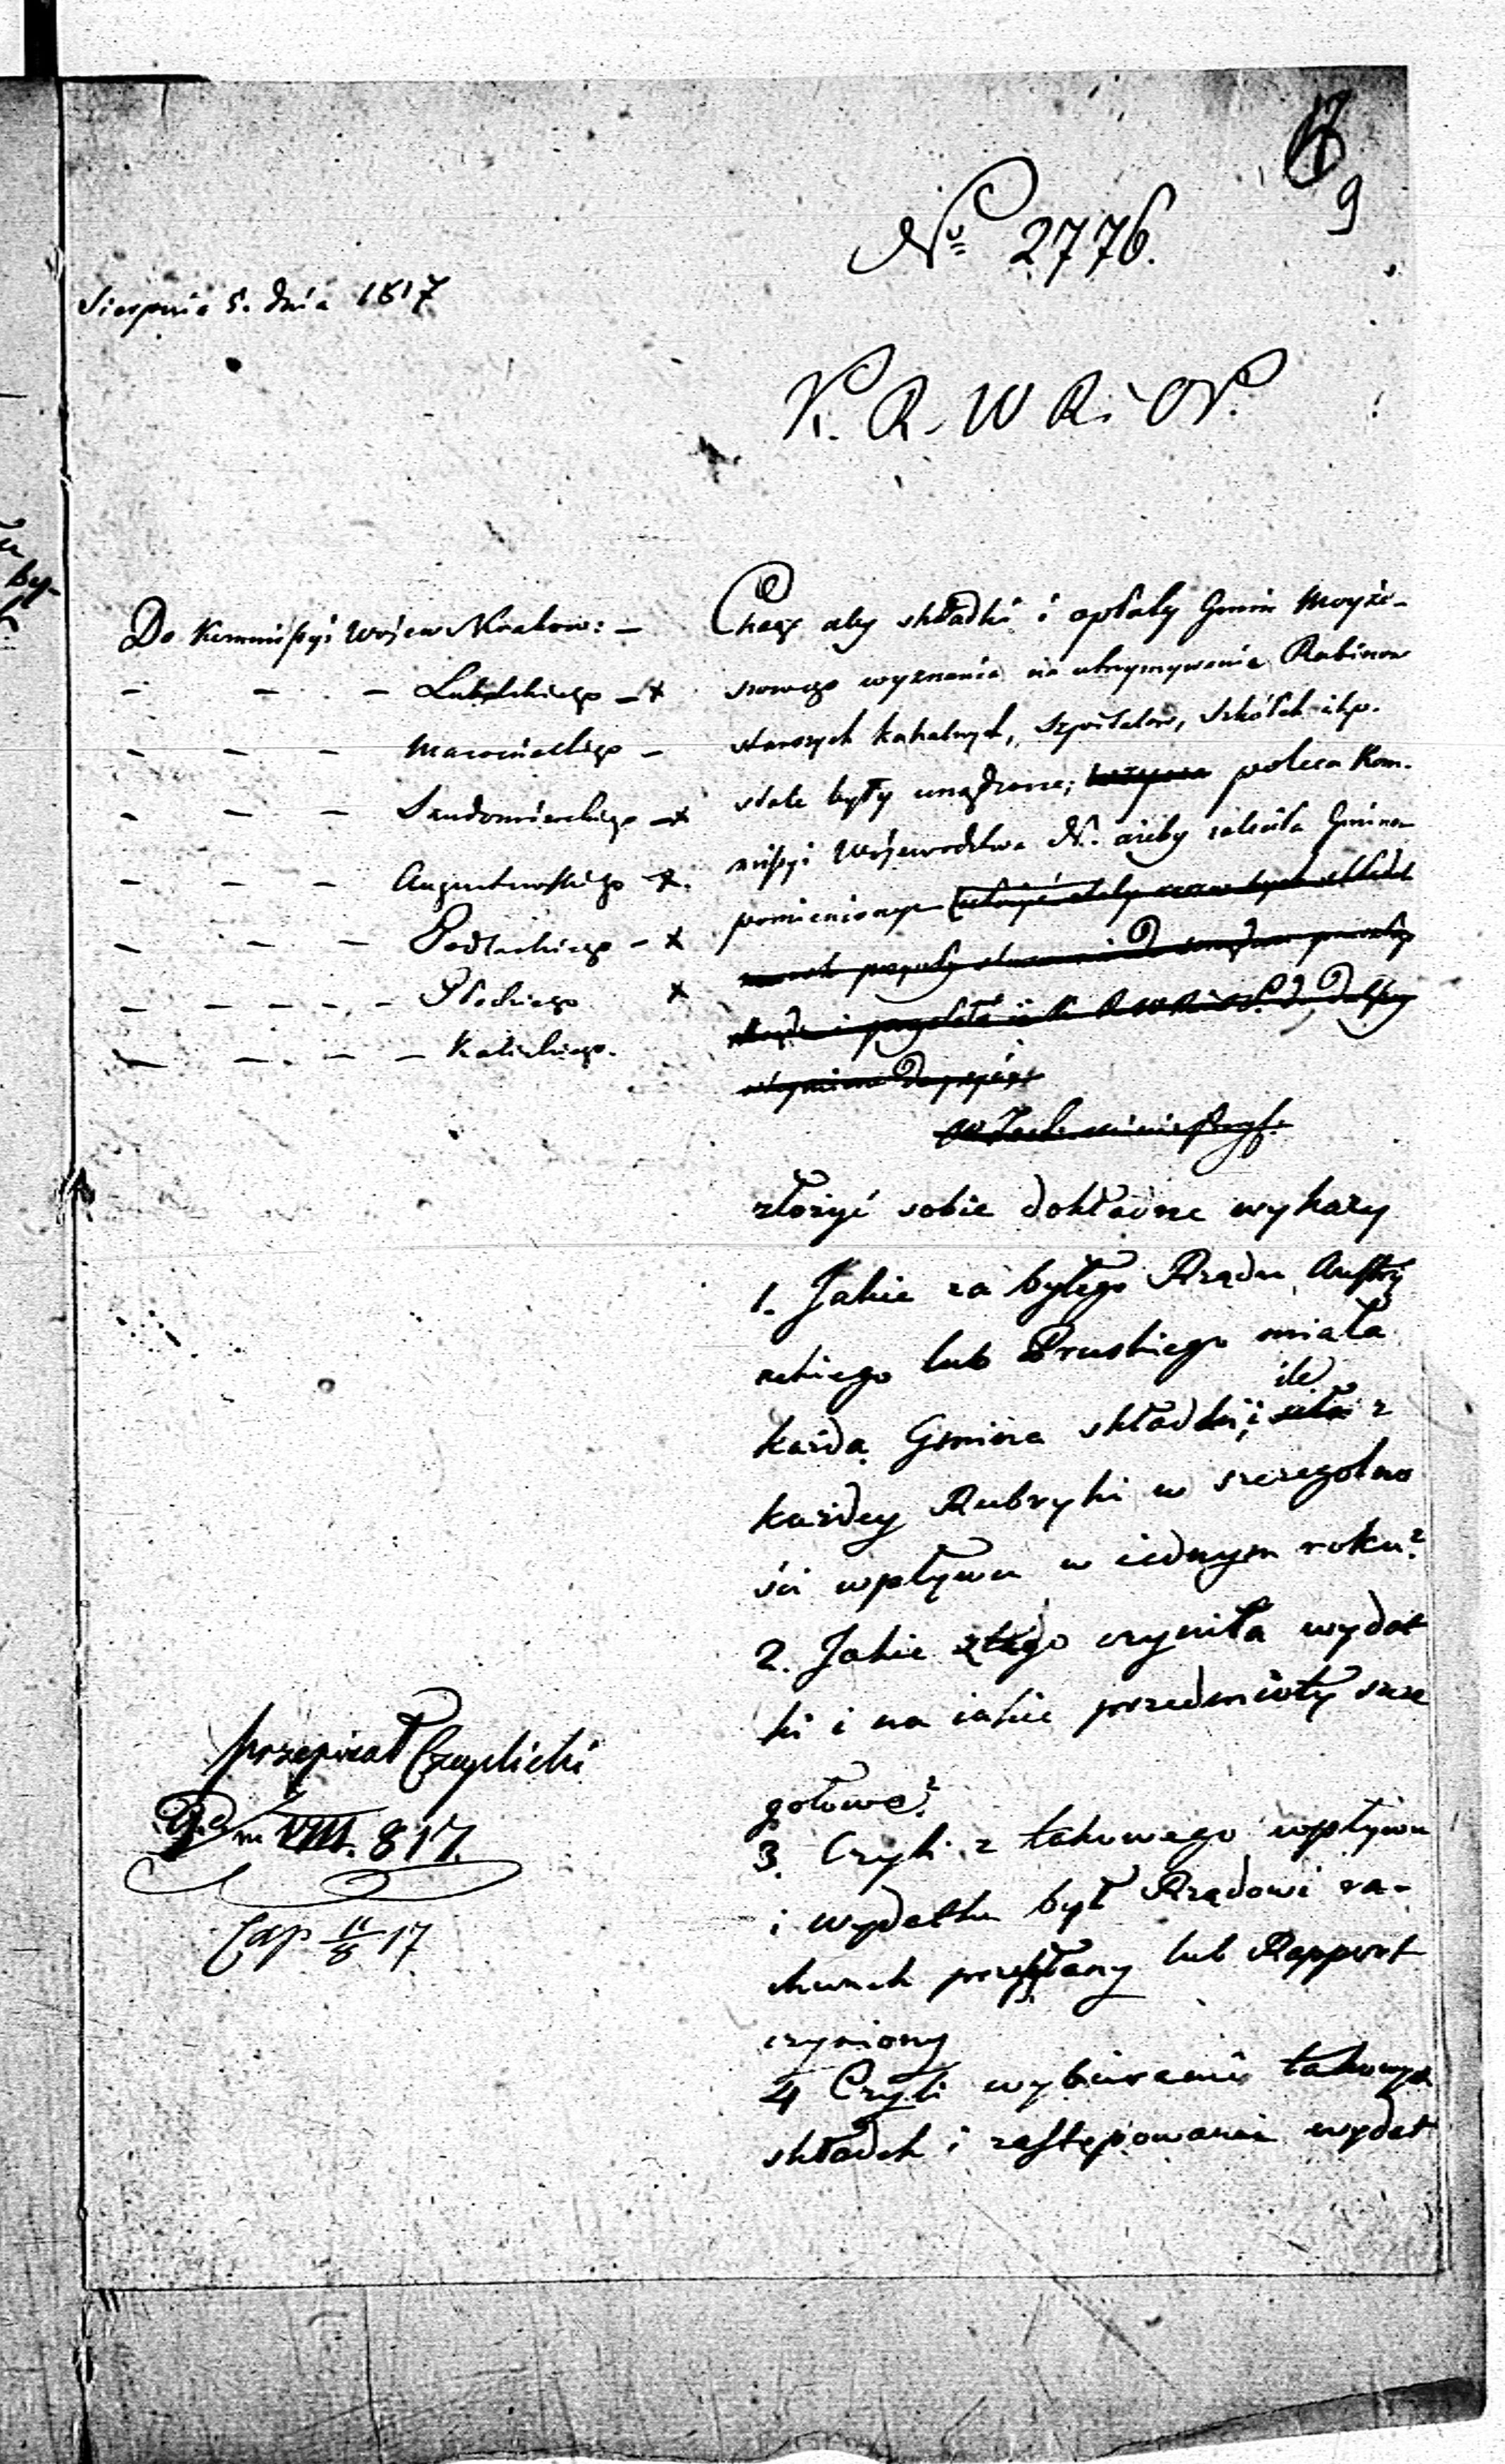 9
No 2776.
Sierpnia 5. dnia 1817
K. R. W R. i O P.
Do Kommissyi Wojew Krakow: –
– – – Lubelskiego – x
– – – Mazowieckiego –
– – – Sandomirskiego – x
– – – Augustowskiego – x.
– – – Podlaskiego – x
– – – – Płockiego x
– – – – Kaliskiego.
Chcąc aby składki i opłaty Gmin Moyże-
szowego wyznania na utrzymywanie Rabinow
starszych kahalnych, Szpitalow, Szkółek itp.
stale były urządzone; wzywa poleca Kom.
missyi Wojewodztwa N. ażeby zaleciła Gminom
pomienionym
i przesłała K R W R i O P. do dalszey
złożyć sobie dokładne wykazy
1. Jakie za byłego Rządu Austry
ackiego lub Pruskiego miała
ile
każda Gmina składki, i z
każdey Rubryki w szczegolno
ści wpływu w iednym roku?
2. Jakie z tego czyniła wydat
ki i na iakie przedmioty szcze
gołowe?
3. Czyli z takowego wpływu
i wydatku był Rządowi ra-
chunek przesłany lub Rapport
czyniony
4 Czyli wybieranie takowych
składek i zastępowanie wydat
przepisał Czaplicki
VIII. 817.
17